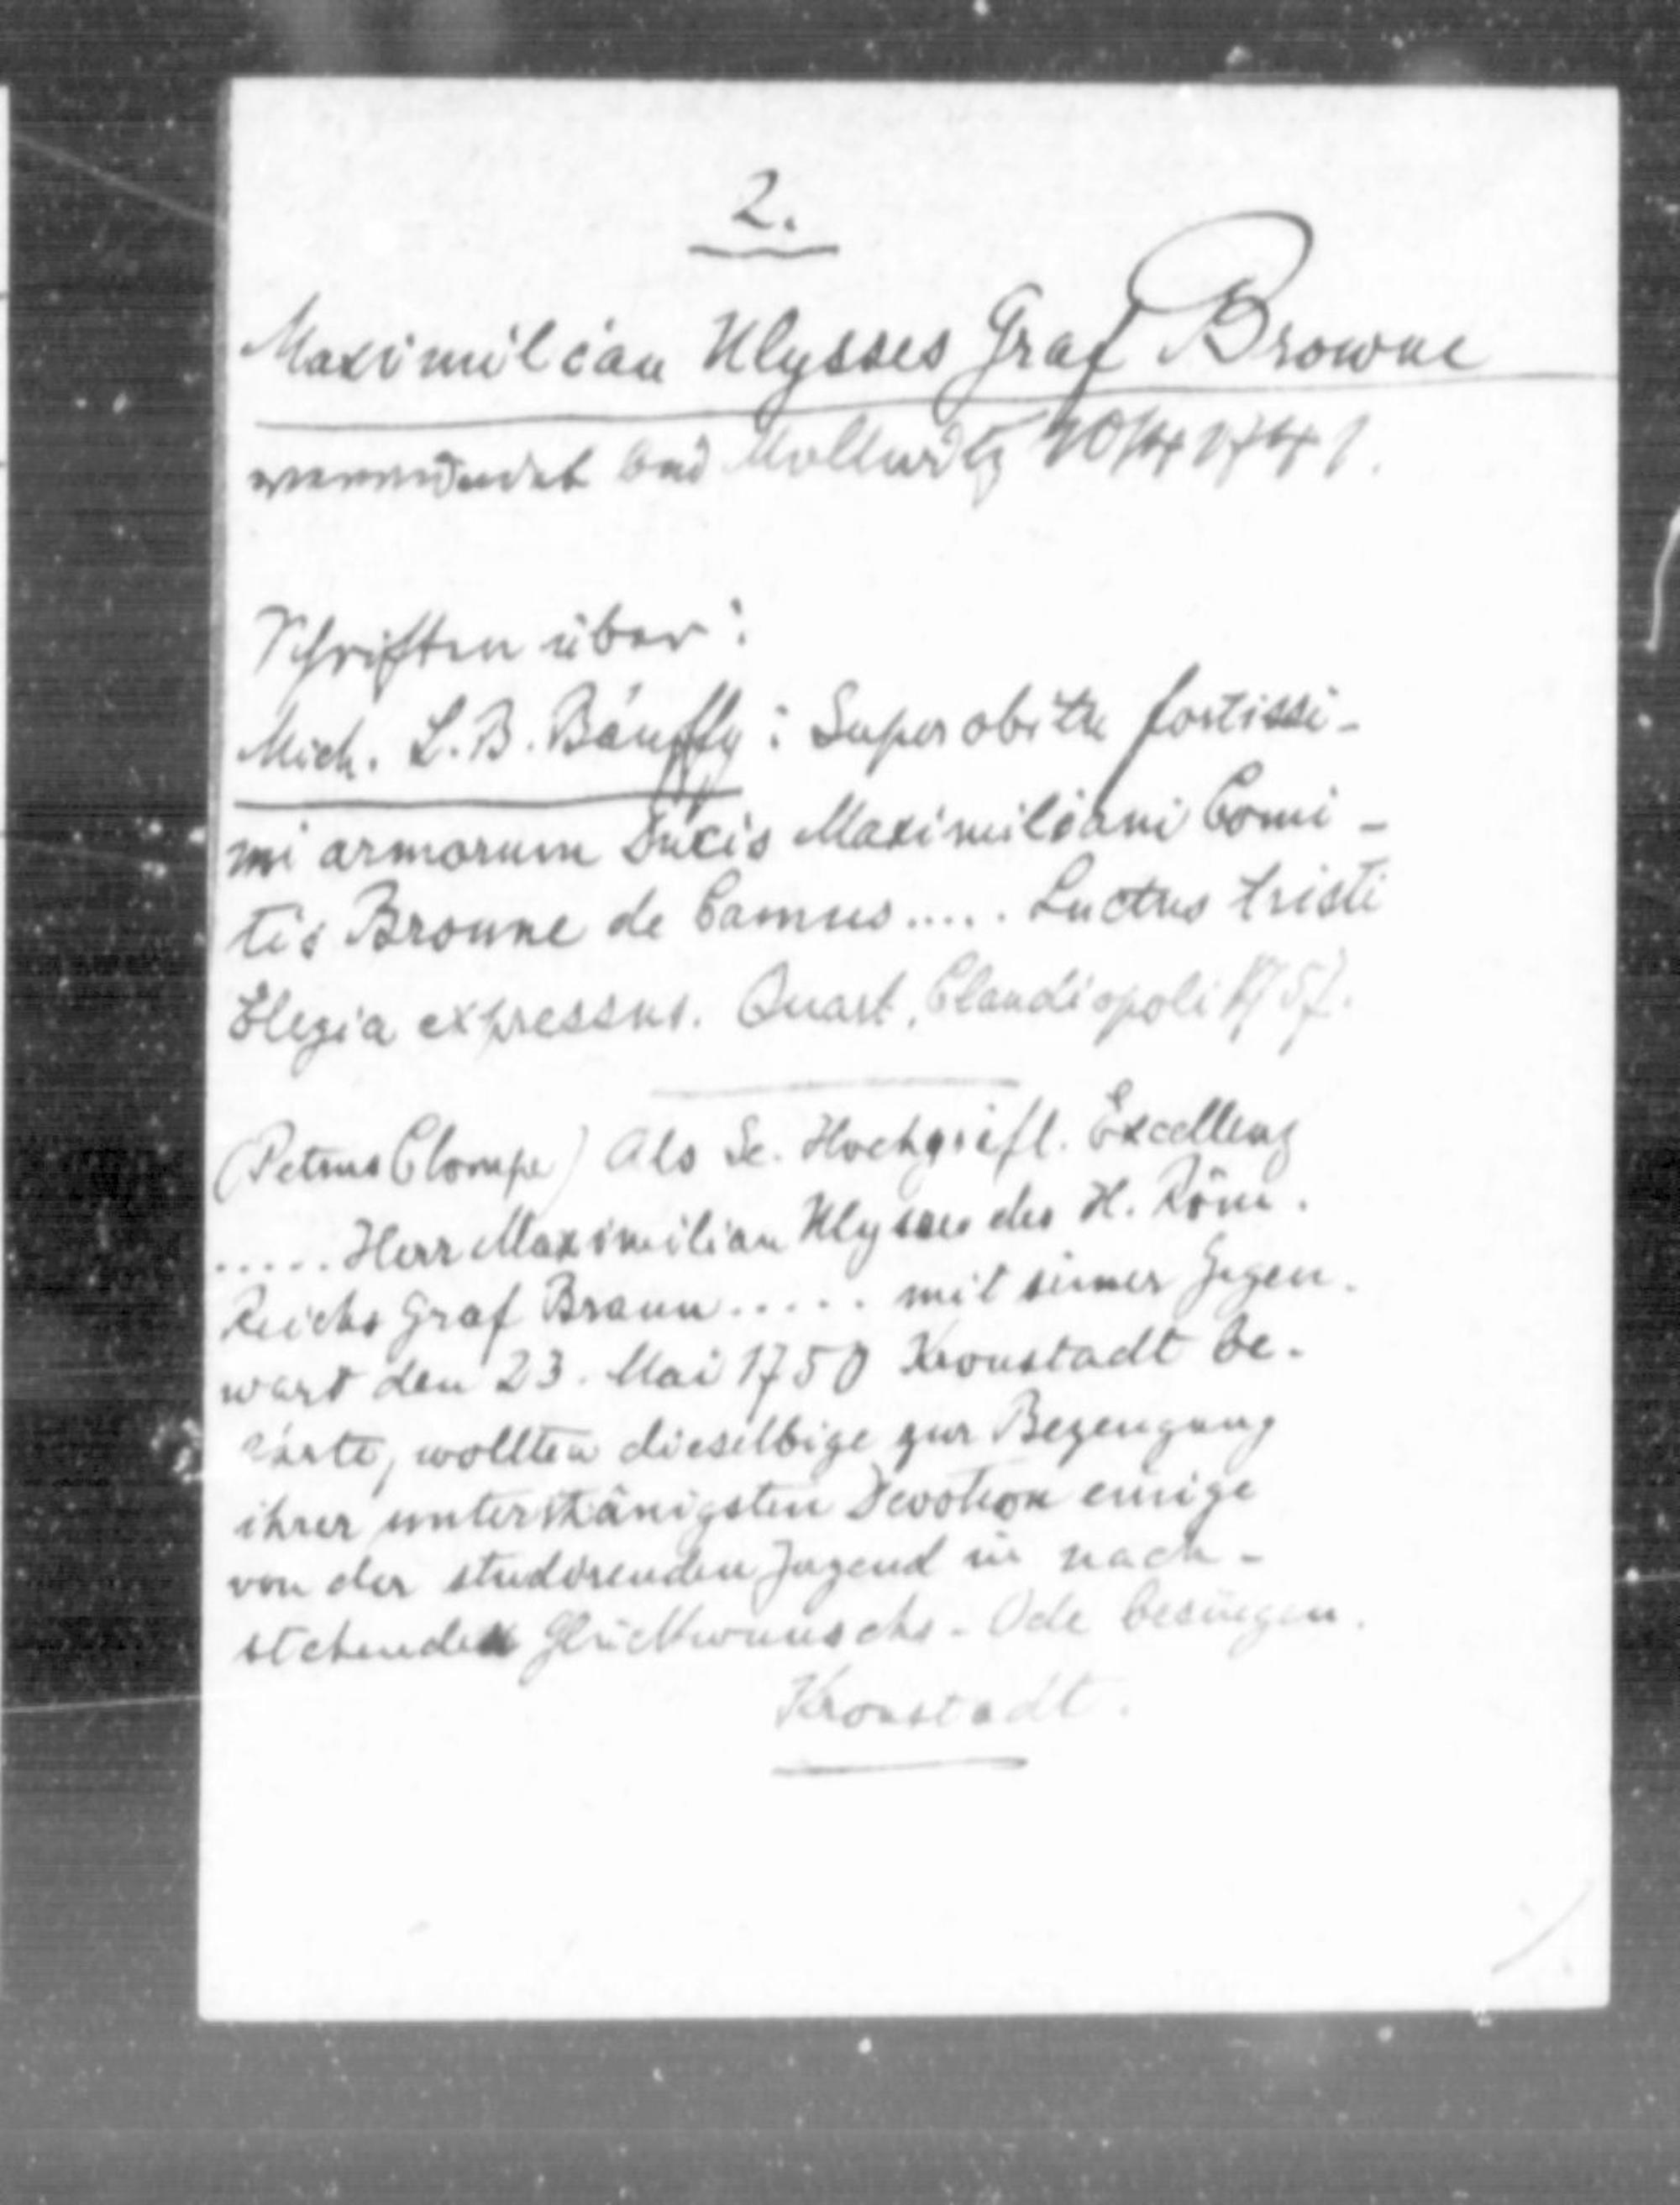 2.
Maximilian Ulysses Graf Browne
verwundet bei Mollwitz 10/4 1741.
Schriften über:
Mich. L. B. Bánffy: Super obitu fortissi-
mi armorum Ducis Maximiliani Comi-
tis Broune de Camus..... Luctus tristi
Elegia expressus. Quart, Claudiopoli 1757.
(Petrus Clompe) Als Se. Hochgräfl. Excellenz
..... Herr Maximilian Ulysses des H. Röm.
Reichs Graf Braun..... mit seiner Gegen.
wart den 23. Mai 1750 Kronstadt be.
zirte, wollten dieselbige zur Bezeugung
ihrer unterthänigsten Devotion einige
von der studirenden Jugend in nach-
stehender Glückwunschs-Ode besingen.
Kronstadt.